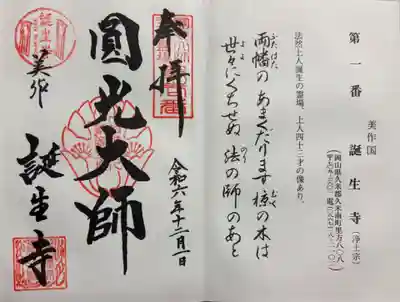 第一番
美作国
誕生寺
(浄土宗)
(岡山県久米郡久米南町里方八〇八
法然上人誕生の霊場、上人四十三才の像あり。
両幡の あまくだります 椋の木は
ふたはた
むく
世々にくちせぬ 法の師のあと
よよ
のり
奉拝
圓光大師
美作
誕生寺
令和六年十二月一日